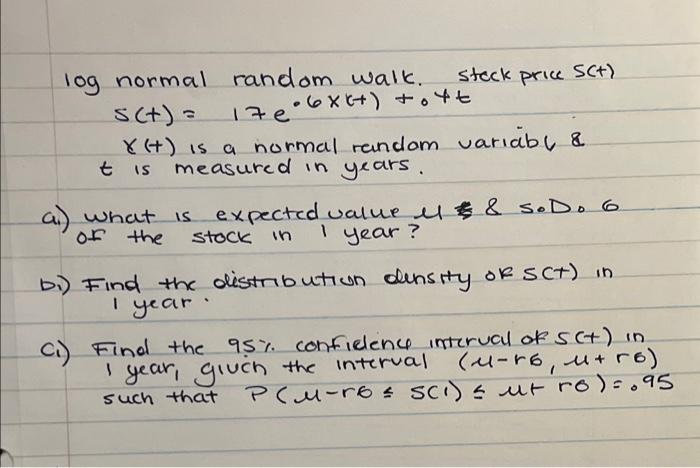 log normal random walk. stock price S(t)
S(t) = 17e^.6X(t) + .4t
X(t) is a normal random variable &
t is measured in years.
a.) what is expected value μ & S.D. σ
of the stock in 1 year?
b.) Find the distribution density of S(t) in
1 year.
c.) Find the 95% confidence interval of S(t) in
1 year, given the interval (μ-rσ, μ+rσ)
such that P(μ-rσ ≤ S(1) ≤ μ+rσ)=.95